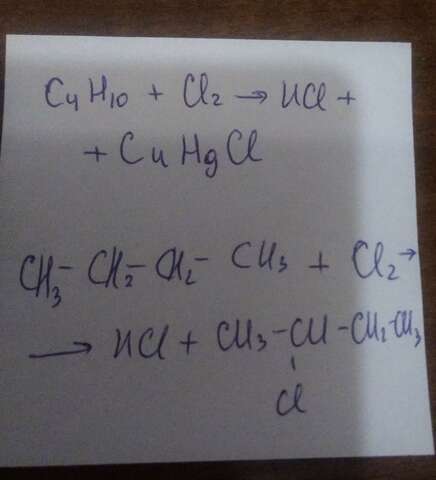 C4H10 + Cl2 → HCl +
+ C4H9Cl
CH3 - CH2 - CH2 - CH3 + Cl2 →
→ HCl + CH3 - CH - CH2 - CH3
Cl